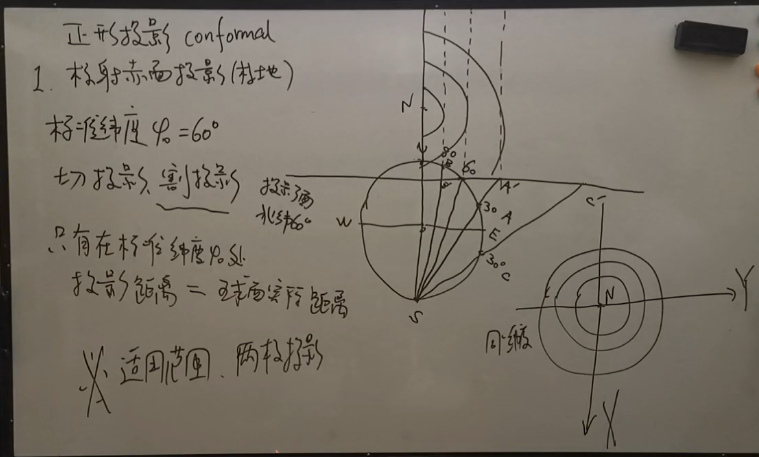 正形投影 conformal
1. 极射赤面投影(极地)
标准纬度 φ₀ = 60°
切投影、割投影
只有在标准纬度φ₀处
投影距离 = 球面实际距离
适用范围、两极投影
投影面
北纬60°
N
N
80
B
60
A'
C'
30
A
W
E
30°
C
S
N
Y
X
同纬度